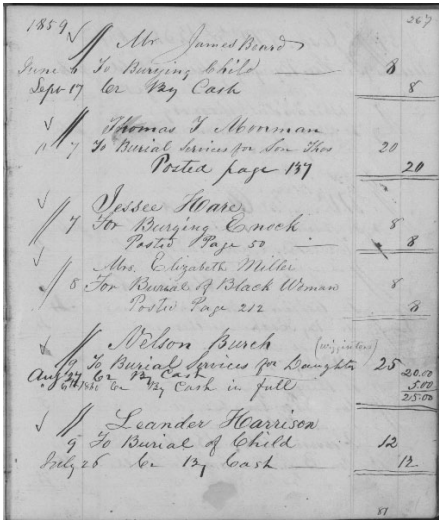 1859 267
Mr James Beard
June 6 To Burying Child 8
Sept 17 Cr By Cash 8
Thomas T Moorman
" 7 To Burial Services for Son Thos 20
Posted page 137 20
Jessee Hare
7 For Burying Enoch 8
Posted Page 50 8
Mrs. Elizabeth Miller
8 For Burial of Black Woman 8
Posted Page 212 8
Nelson Burch (Wigginton)
9 To Burial Services for Daughter 25
Aug 27 Cr By Cash 20.00
1860 Cr By Cash in full 5.00
25.00
Leander Harrison
9 To Burial of Child 12
July 26 Cr By Cash 12